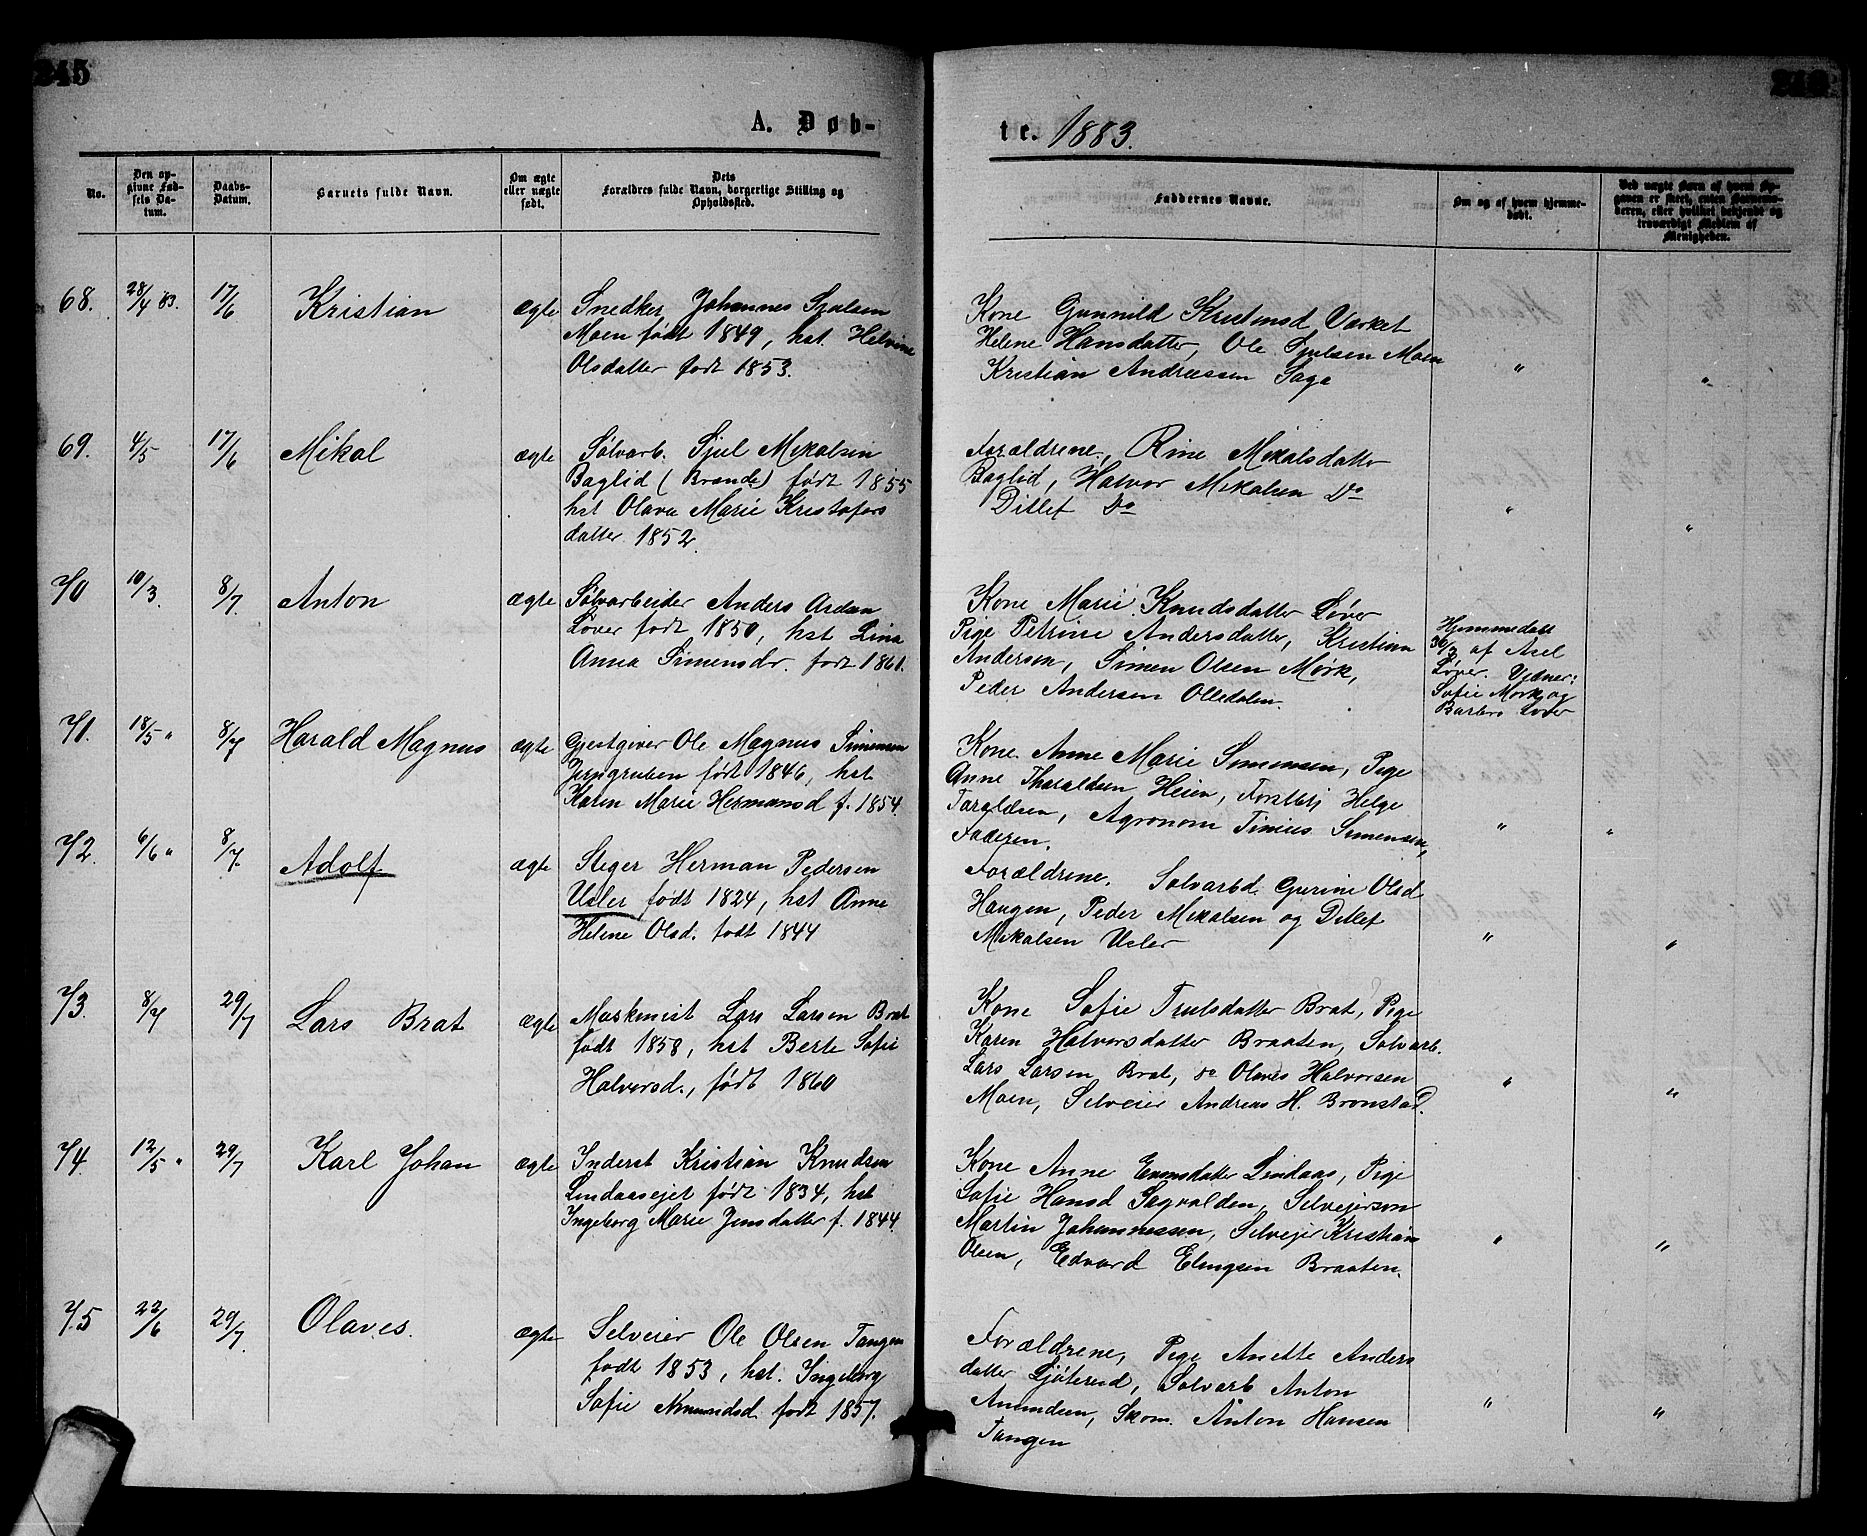 245
A. Døb-
No.
Den op-
givne Fød-
sels Da-
tum.
Daabs-
Datum.
Barnets fulde Navn.
Om ægte
eller uægte
født.
Dets
Forældres fulde Navn, borgerlige Stilling og
Opholdssted.
68. 28/4 83. 17/6 Kristian ægte Snedker Johannes
Moen født 1849, hst. Helvine
Olsdatter født 1853.
69. 4/5 17/6 Mikal ægte Sølvarb. Sjul Mikalsen
Baglid (Brande) født 1855
hst Olava Marie Kristofers
datter 1852.
70 10/3. 8/7. Anton ægte Sølvarbeider Anders
Løver født 1850, hst Lina
Anna Simensdr. født 1861.
71. 18/5 " 8/7 Harald Magnus ægte Gjestgiver Ole Magnus Simensen
født 1846, hst
Karen Marie Hermansd f. 1854.
72. 6/6 " 8/7. Adolf ægte Steger Herman Pedersen
Usler født 1824, hst Anne
Helene Olsd. født 1844
73. 8/7 29/7 Lars Brat ægte Maskinist Lars Larsen Brat
født 1858, hst Berte Sofie
Halvorsd., født 1860
74. 12/5 " 29/7 Karl Johan ægte Inderst Kristian Knudsen
Lindaasejet født 1834, hst
Ingeborg Marie Jensdatter f. 1844.
75 22/6 29/7. Olaves. ægte Selveier Ole Olsen Tangen
født 1853, hst. Ingeborg
Sofie født 1857.
te. 1883.
Faddernes Navne.
Om og af hvem hjemme-
døbt.
Ved uægte Børn af hvem Op-
gaven er skeet, enten Barnemo-
deren, eller hvilket bekjendt og
troværdigt Medlem af
Menigheden.
Kone Gunnild Værket
Helene Hansdatter, Ole Sjulsen Moen
Kristian Andreassen Saga " "
Forældrene, Rine Mikalsdatter
Baglid, Halvor Mikalsen Do
Ditlef Do " "
Kone Marie Knudsdatter Løver
Pige Petrine Andersdatter, Kristian
Anderson, Simen Olsen Mørk,
Peder Andersen Olledalen.
Hjemmedøbt
30/3 af Axel
Løver. Vidner:
Sofie Mørk og
Barbro Løver
Kone Anne Marie Simensen, Pige
Anne Tharaldsen Heien, Helge
Taraldsen, Agronom Simensen,
Faderen. " "
Forældrene. Sølvarbd Gurine Olsd
Haugen, Peder Mikalsen og Ditlef
Mikalsen Usler " "
Kone Sofie Trulsdatter Brat, Pige
Karen Halvorsdatter Braaten, Sølvarb.
Lars Larsen Brat, do Olaves Halvorsen
Moen, Selveier Andreas H. Bronstad. " "
Kone Anne Lindaas, Pige
Sofie Hansd Sagvolden, Selvejerson
Martin Johannessen, Selvejer Kristian
Olsen, Edvard Elingsen Braaten. " "
Forældrene, Pige Anette Anders
datter Ljøterud, Sølvarb Anton
Amundsen, Skom. Anton Hansen
Tangen " "